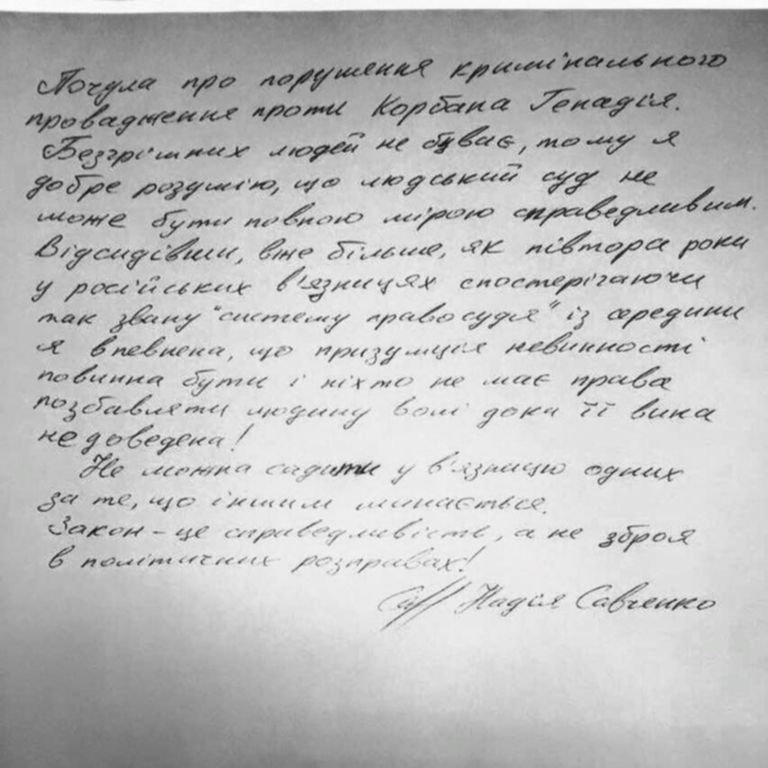 Почула про порушення кримінального
провадження проти Корбана Генадія.
Безгрішних людей не буває, тому я
добре розумію, що людський суд не
може бути повною мірою справедливим.
Відсидівши, вже більше, як півтора роки
у російських в'язницях спостерігаючи
так звану "систему правосуддя" із середини
я впевнена, що призумція невинності
повинна бути і ніхто не має права
позбавляти людину волі доки її вина
не доведена!
Не можна садити у в'язницю одних
за те, що іншим минається.
Закон - це справедливість, а не зброя
в політичних розправах!
Надія Савченко